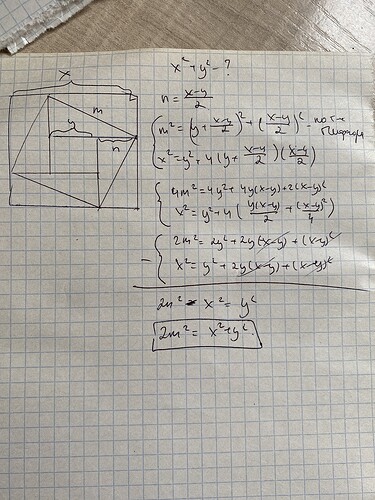 x
m
y
n
x² + y² - ?
n = (x-y)/2
m² = (y + (x-y)/2)² + ((x-y)/2)² - по т-е Пифагора
x² = y² + 4(y + (x-y)/2)((x-y)/2)
4m² = 4y² + 4y(x-y) + 2(x-y)²
x² = y² + 4(y(x-y)/2 + (x-y)²/4)
2m² = 2y² + 2y(x-y) + (x-y)²
- x² = y² + 2y(x-y) + (x-y)²
2m² - x² = y²
2m² = x² + y².